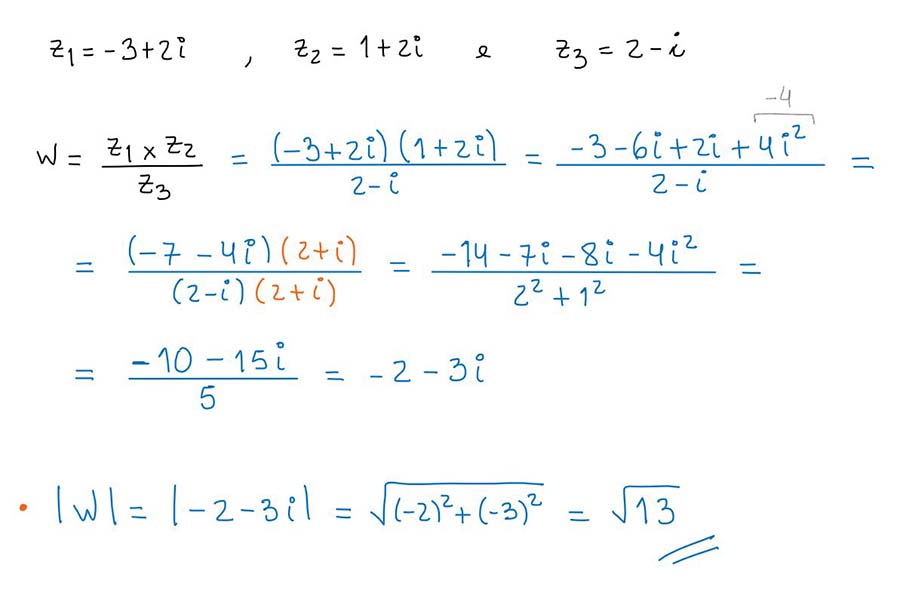 z₁ = -3+2i , z₂ = 1+2i e z₃ = 2-i
-4
w = (z₁ x z₂)/z₃ = ((-3+2i)(1+2i))/(2-i) = (-3-6i+2i+4i²)/(2-i) =
= ((-7-4i)(2+i))/((2-i)(2+i)) = (-14-7i-8i-4i²)/(2²+1²) =
= (-10-15i)/5 = -2-3i
• |w| = |-2-3i| = √((-2)²+(-3)²) = √13